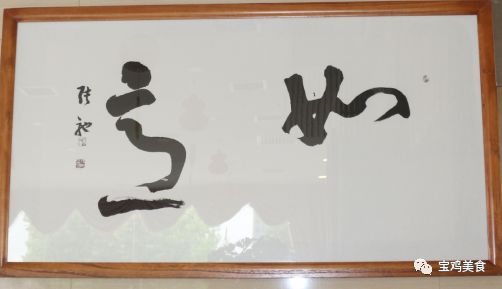 如意
宝鸡美食